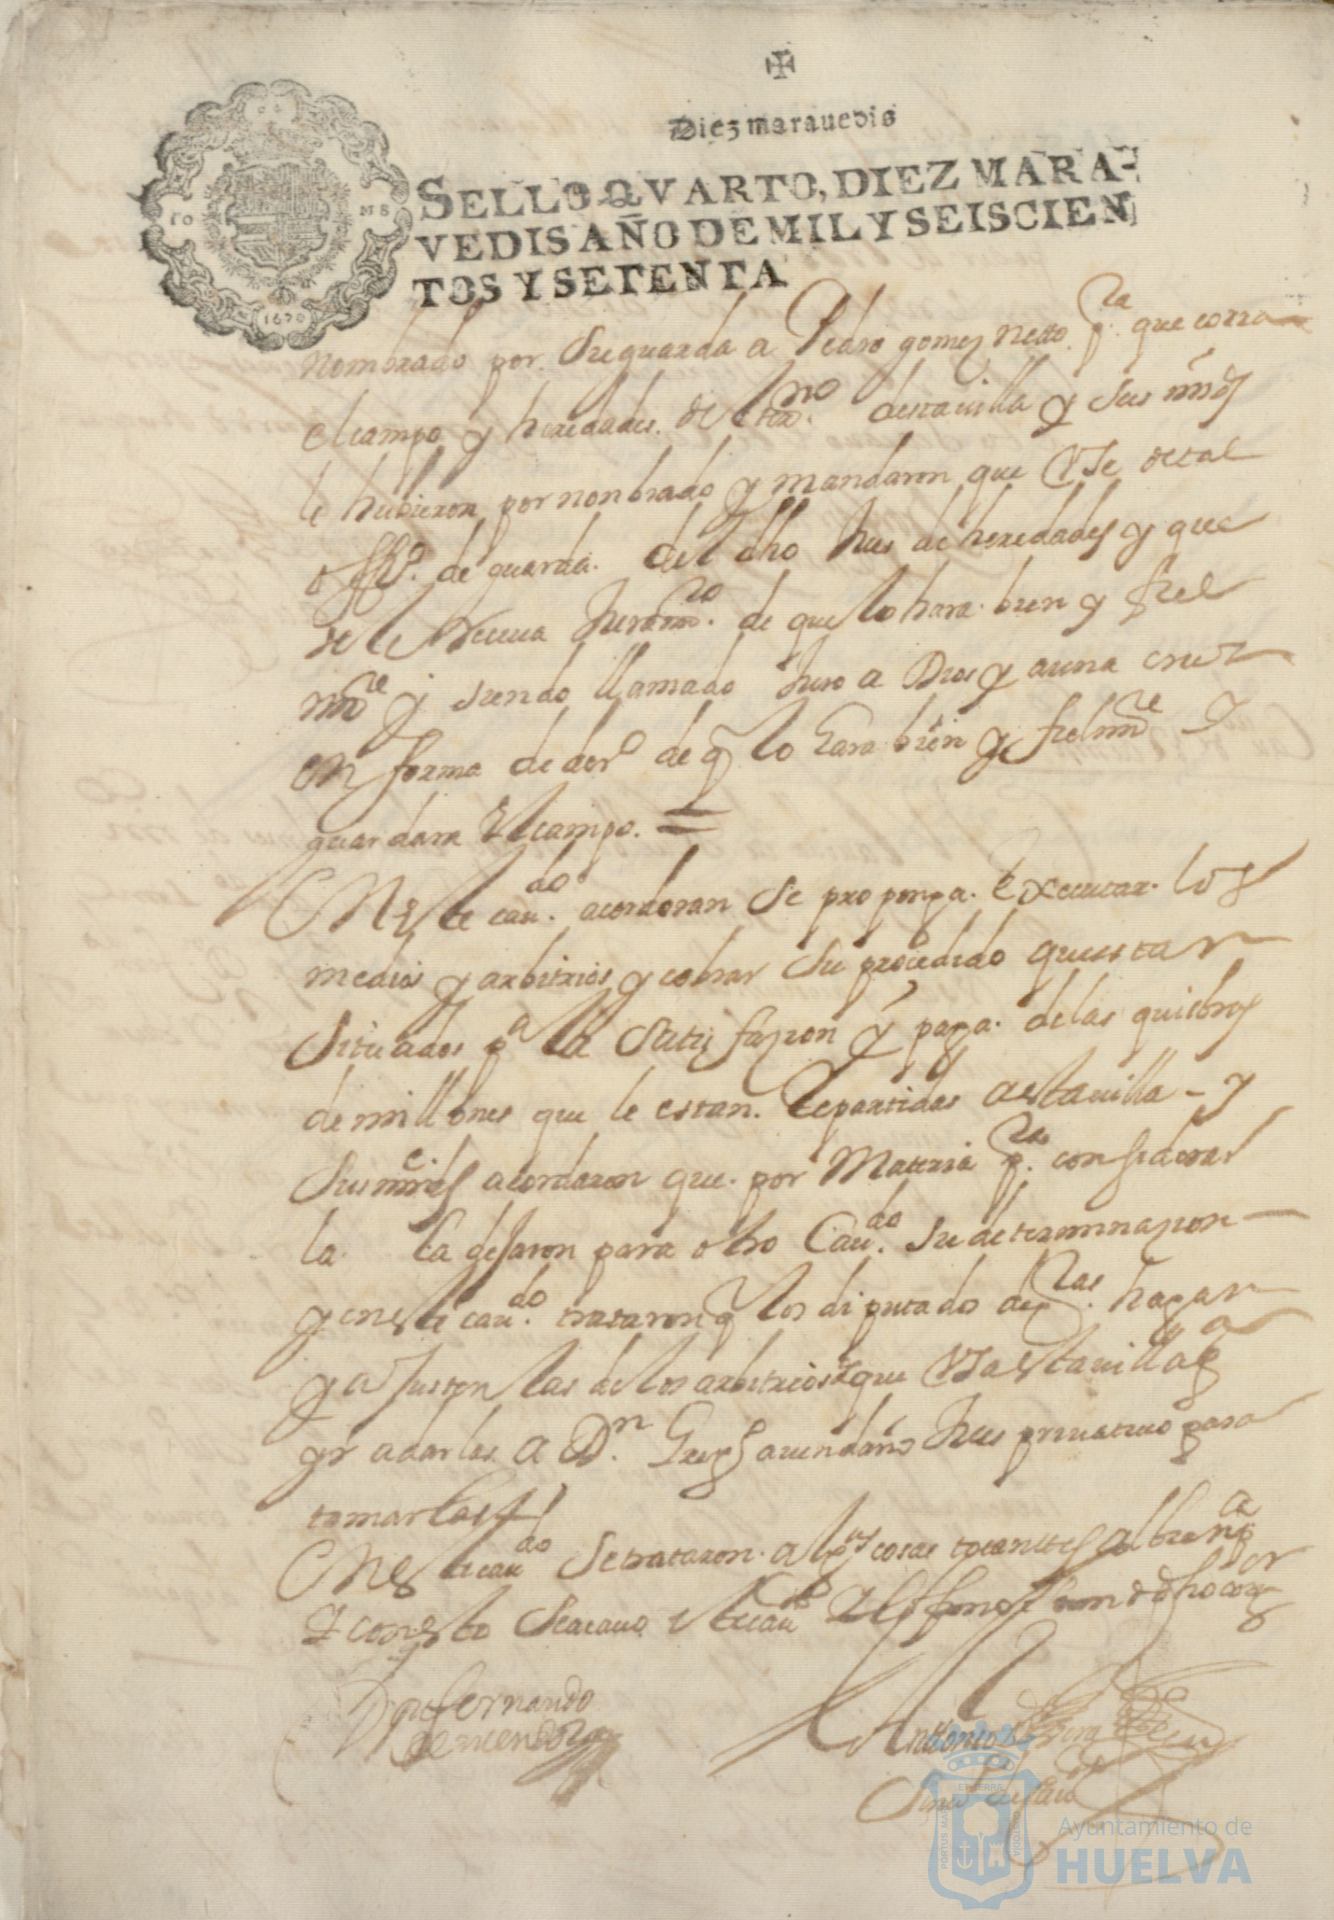 Diez marauedis
SELLO QVARTO, DIEZ MARA-
VEDIS AÑO DE MIL Y SEISCIEN
TOS Y SETENTA
1670
nombrado por su guarda a Pedro gomez netto pra que corra
el campo y heredades del termno desta uilla y sus mds
le hubieron por nonbrado y mandaron que Vse de tal
offo. de guarda. del dho Jues de heredades y que
se le Receua Juramto. de que lo hara bien y fiel
mte y siendo llamado Juro a Dios y a una cruz
en forma de dero de q lo hara bien y fielmte y
guardara El campo. =
En Este caudo. acordoran se proponga Executar los
medios y arbitrios y cobrar su prosedido que estan
situados pa la satisfazion y paga. de las quiebras
de millones que le estan. Repartidas a esta uilla - y
sus mrdes acordaron que por Materia pra considerar
la la dejaron para otro Caudo. su determinazion
y en este caudo. trataron q los diputado de Rtas. hagan
y ajusten las de los arbitrios que Vsa esta uilla pa
yr a darlas a Dn. Gregо auendaño Jues priuatiuo para
tomarlas
En Este caudo se trataron. algas cosas tocantes al
y con esto se acauo Este caudo y lo firmo el dho cor
Dn fernando
de mendoza
Antonio
Ayuntamiento de
HUELVA